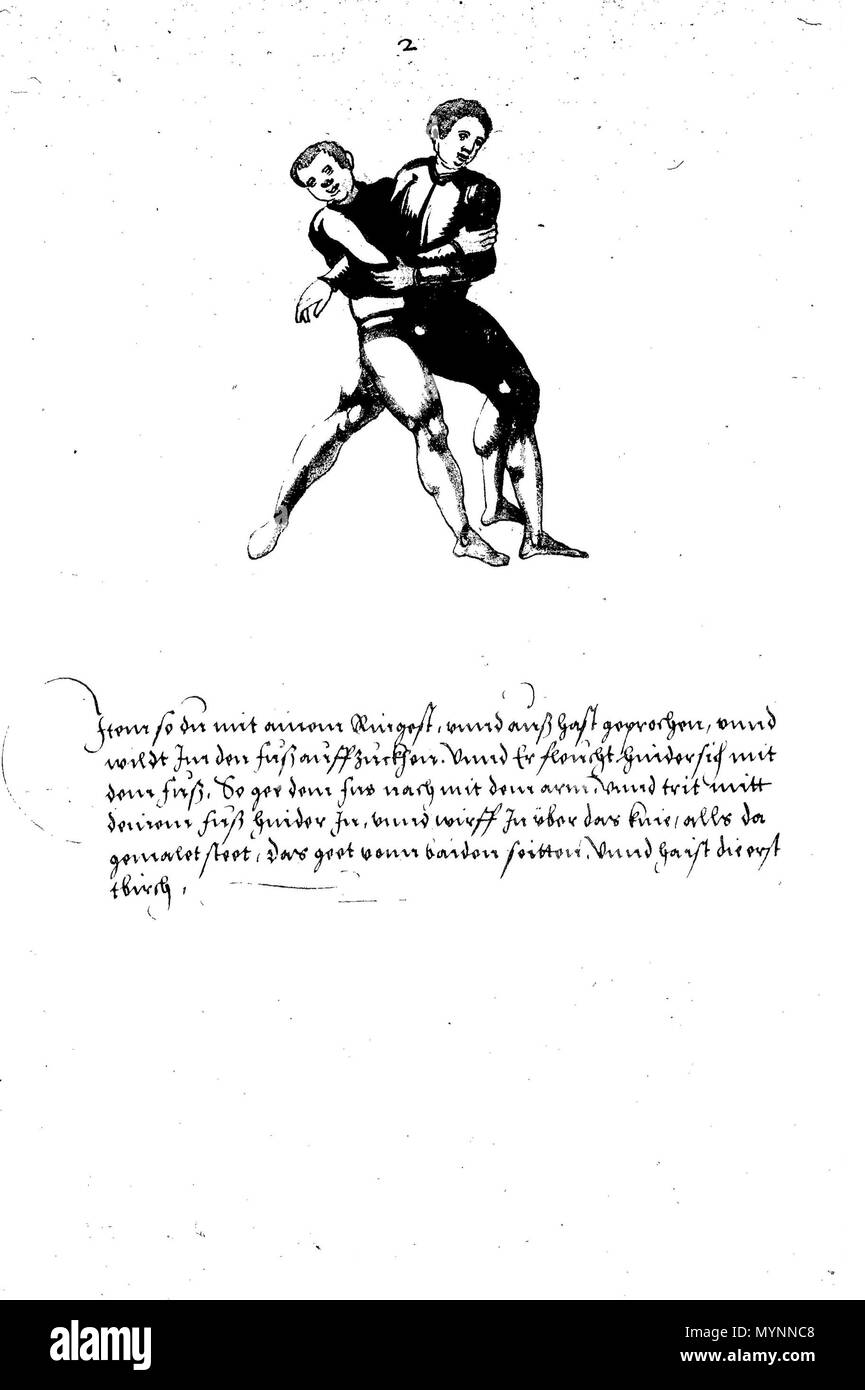 2
Item so du mit ainem Ringest, vnnd auß hast geprochen, vnnd
wildt Im den fuß auff zuckhen. Vnnd Er fleucht hinder sich mit
dem fuß, So gee dem fus nach mit dem arm, vnnd trit mitt
deinem fuß hinder In, vnnd wirff In über das knie, alls da
gemalet steet, Das geet vonn baiden seitten, Vnnd haist die erst
a alamy
alamy
Image ID: MYNNC8
www.alamy.com